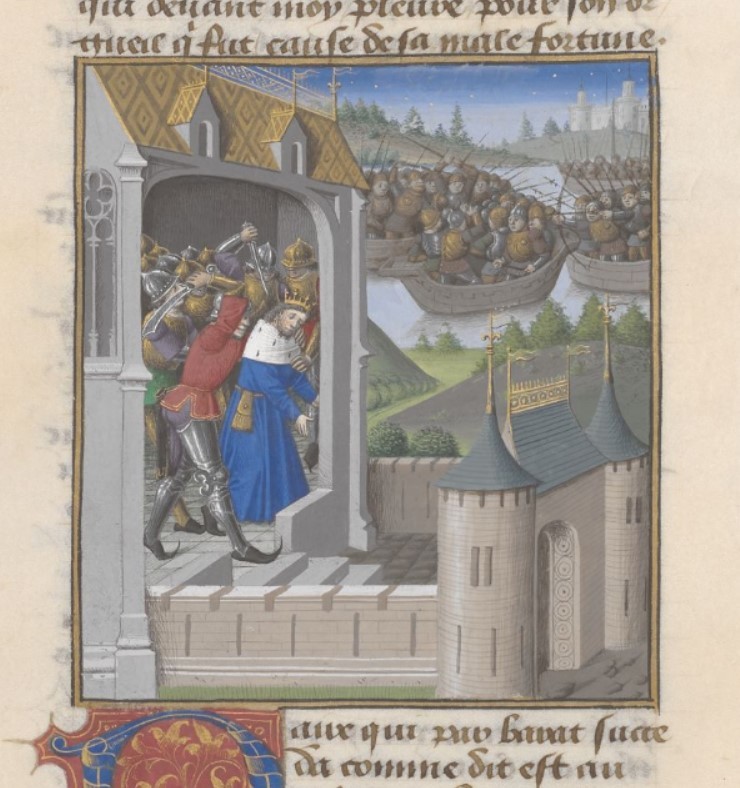 qui devant moy pleure pour son or
gueil q̓ fut cause de sa male fortune.
aux qui par barat succe
da comme dit est au